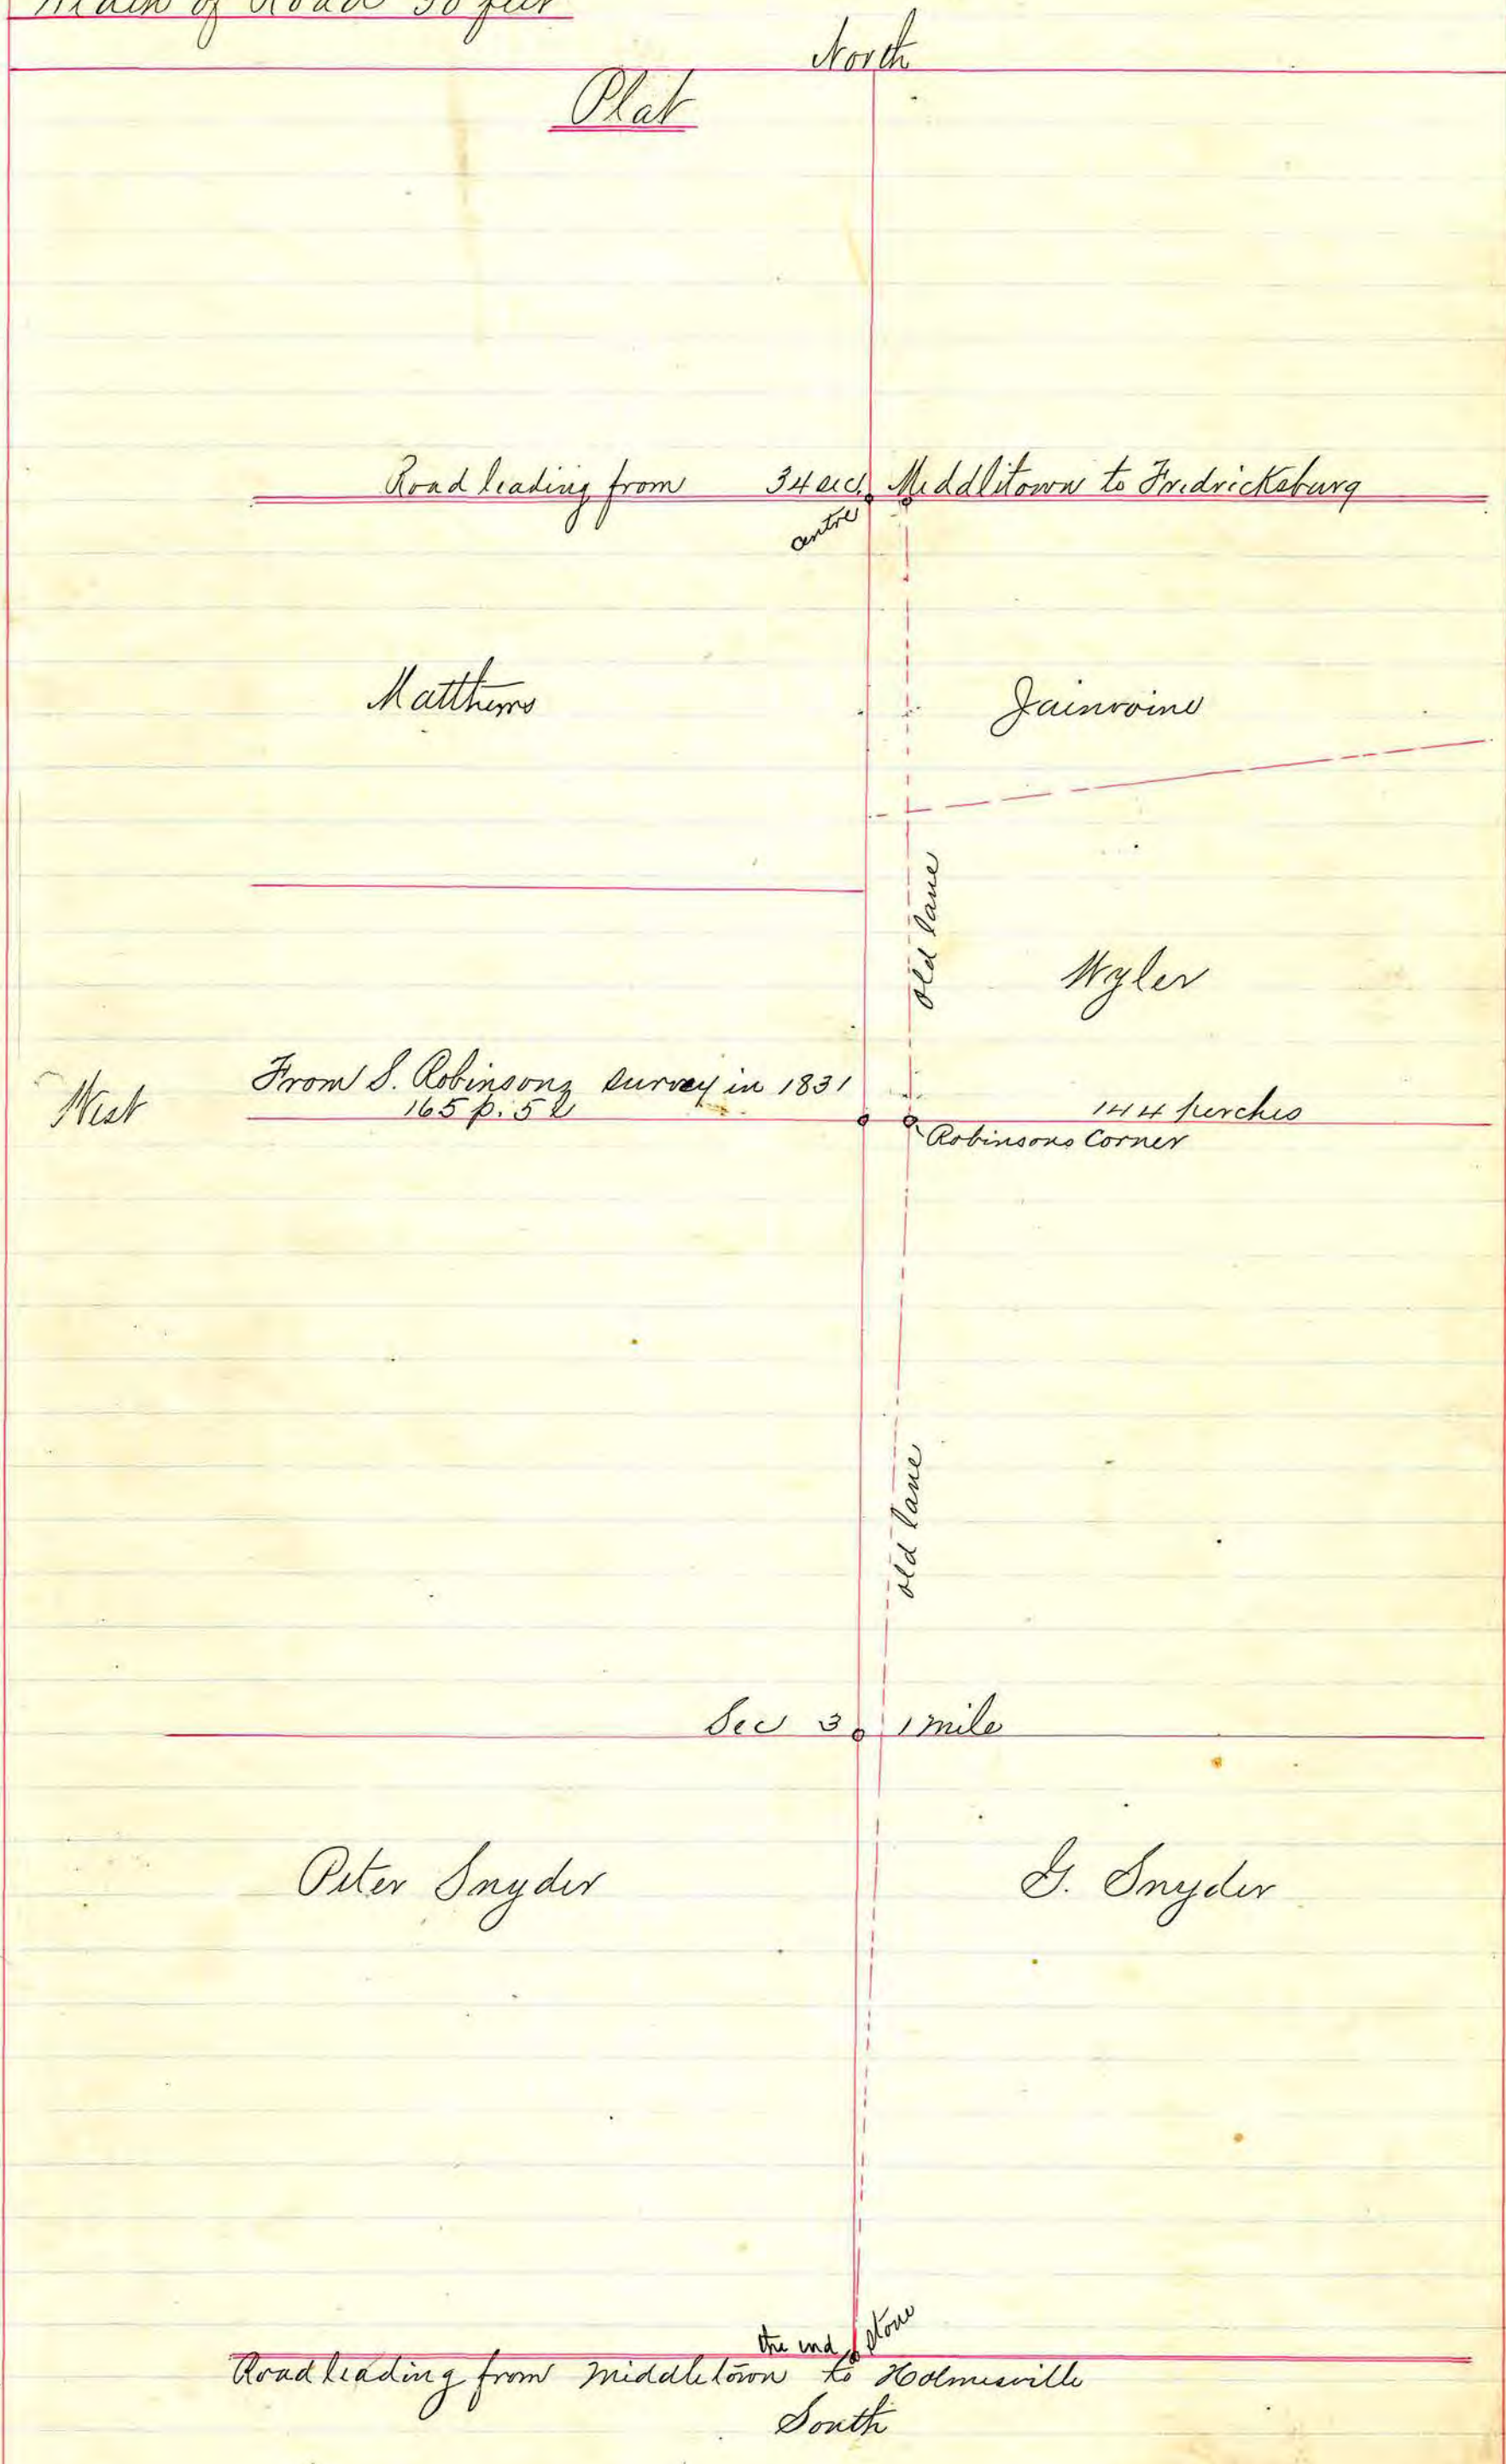 of Road 30 feet
North
Plat
Road leading from Middlitown to Fredricksburg
Matthews
old lane
Wyler
From S. Robinsons Survey in 1831
West
165 p. 52
144 perches
Robinsons Corner
old lane
Sec 36 1 mile
Peter Snyder
G. Snyder
the end stone
Road leading from Middletown to Holmesville
South